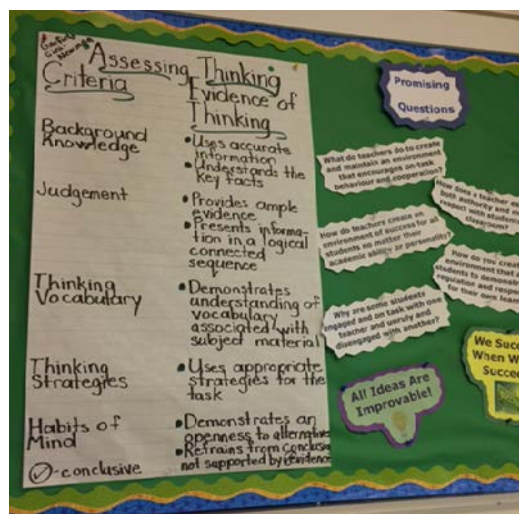 Assessing Thinking
Criteria
Evidence of
Thinking
Background
Knowledge
•Uses accurate
information
•Understands the
key facts
Judgement
•Provides ample
evidence
•Presents informa-
tion in a logical
connected
sequence
Thinking
Vocabulary
•Demonstrates
understanding of
vocabulary
associated with
subject material
Thinking
Strategies
•Uses appropriate
strategies for the
task
Habits of
Mind
•Demonstrates an
openness to
•Refrains from
not supported by evidence
✓-conclusive
Promising
Questions
What do teachers do to create
and maintain an environment
that encourages on-task
behaviour and cooperation?
How does a teacher
both authority and
respect with
classroom?
How do teachers create an
environment of success for all
students no matter their
academic ability or personality?
How do you
environment that
students to
regulation and
for their own
Why are some students
engaged and on task with one
teacher and unruly and
disengaged with another?
All Ideas Are
Improvable!
We
When